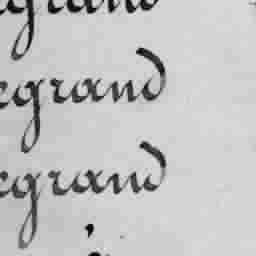 egrand
egrand
egrand